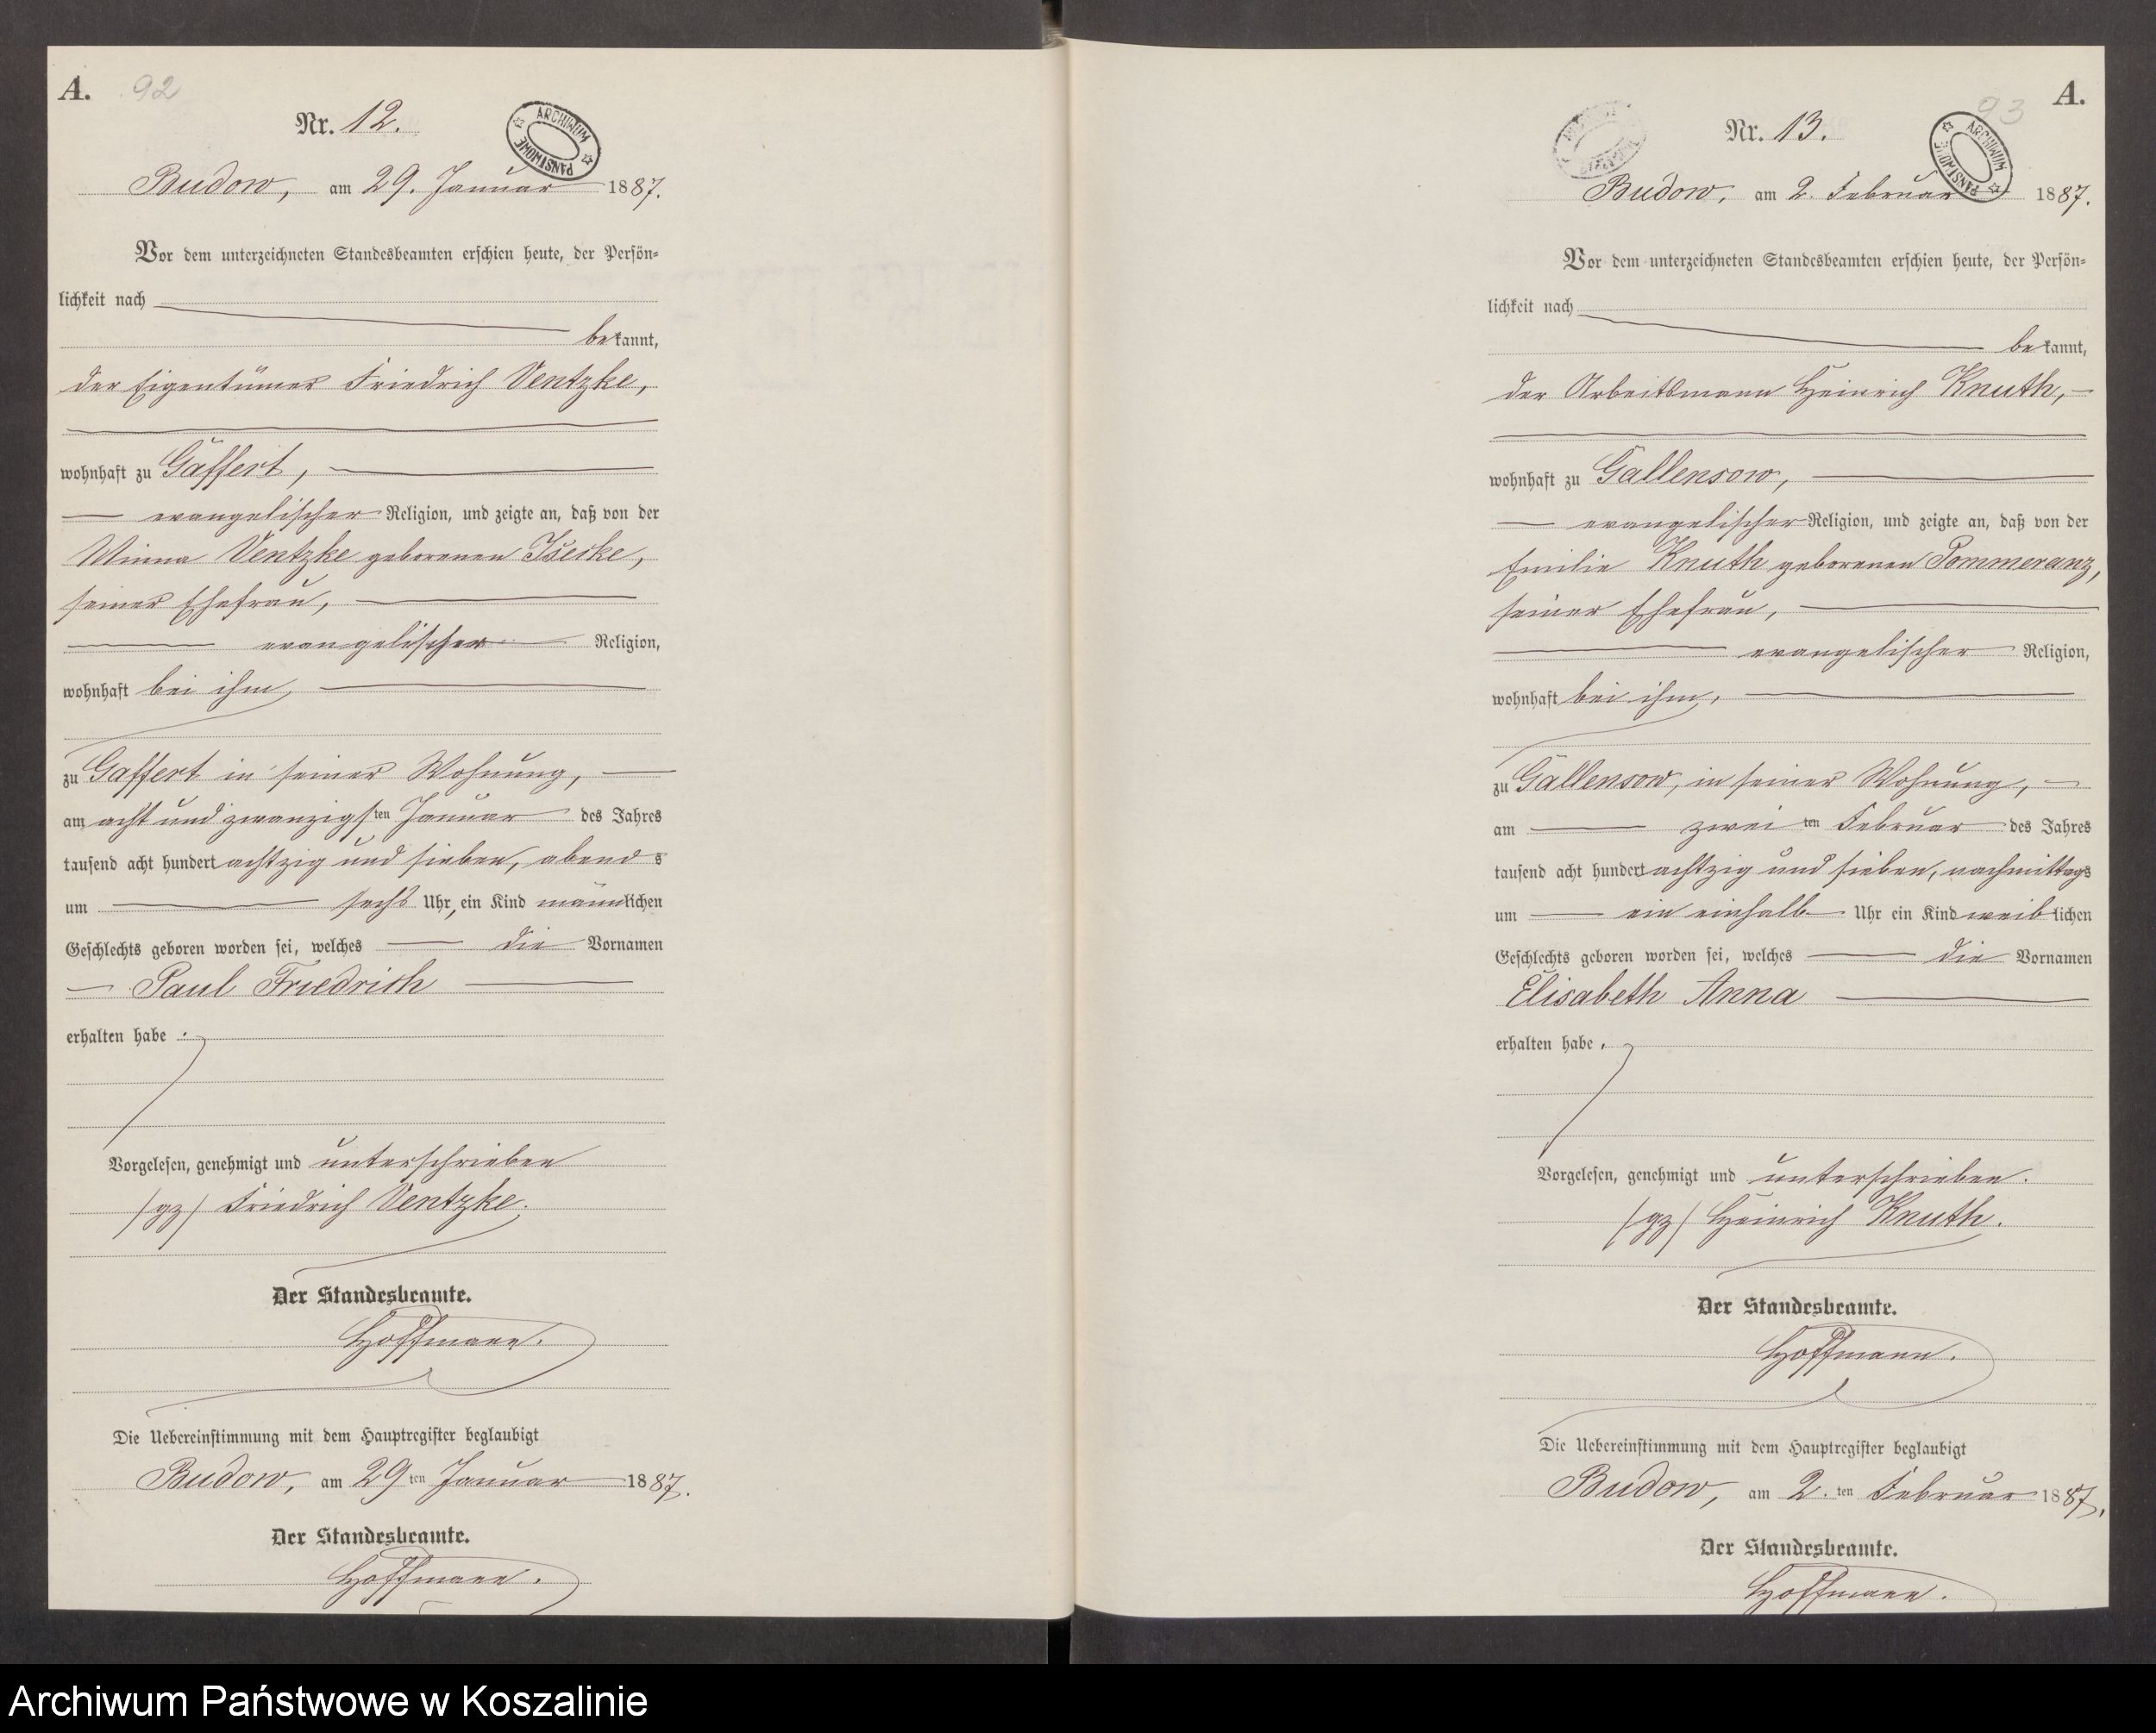 A. 92
Nr. 12.
ARCHIWUM PAŃSTWOWE
Budow, am 29. Januar 1887.
Vor dem unterzeichneten Standesbeamten erschien heute, der Persön-
lichkeit nach
bekannt,
der Eigentümer Friedrich Ventzke,
wohnhaft zu Gaffert,
evangelischer Religion, und zeigte an, daß von der
Minna Ventzke geborenen
seiner Ehefrau,
evangelischer Religion,
wohnhaft bei ihm,
zu Gaffert in seiner Wohnung,
am acht und zwanzigsten Januar des Jahres
tausend acht hundert achtzig und sieben, abends
um sechs Uhr, ein Kind männlichen
Geschlechts geboren worden sei, welches die Vornamen
Paul Friedrich
erhalten habe.
Vorgelesen, genehmigt und unterschrieben
/gz/ Friedrich Ventzke.
Der Standesbeamte.
Hoffmann.
Die Uebereinstimmung mit dem Hauptregister beglaubigt
Budow, am 29ten Januar 1887.
Der Standesbeamte.
Hoffmann.
A.
93
Nr. 13.
ARCHIWUM PAŃSTWOWE
Budow, am 2. Februar 1887.
Vor dem unterzeichneten Standesbeamten erschien heute, der Persön-
lichkeit nach
bekannt,
der Arbeitsmann Heinrich Knuth,
wohnhaft zu Gallensow,
evangelischer Religion, und zeigte an, daß von der
Emilie Knuth geborenen Pommeranz,
seiner Ehefrau,
evangelischer Religion,
wohnhaft bei ihm,
zu Gallensow, in seiner Wohnung,
am zweiten Februar des Jahres
tausend acht hundert achtzig und sieben, nachmittags
um ein einhalb Uhr ein Kind weiblichen
Geschlechts geboren worden sei, welches die Vornamen
Elisabeth Anna
erhalten habe.
Vorgelesen, genehmigt und unterschrieben.
/gz/ Heinrich Knuth.
Der Standesbeamte.
Hoffmann.
Die Uebereinstimmung mit dem Hauptregister beglaubigt
Budow, am 2.ten Februar 1887.
Der Standesbeamte.
Hoffmann.
Archiwum Państwowe w Koszalinie